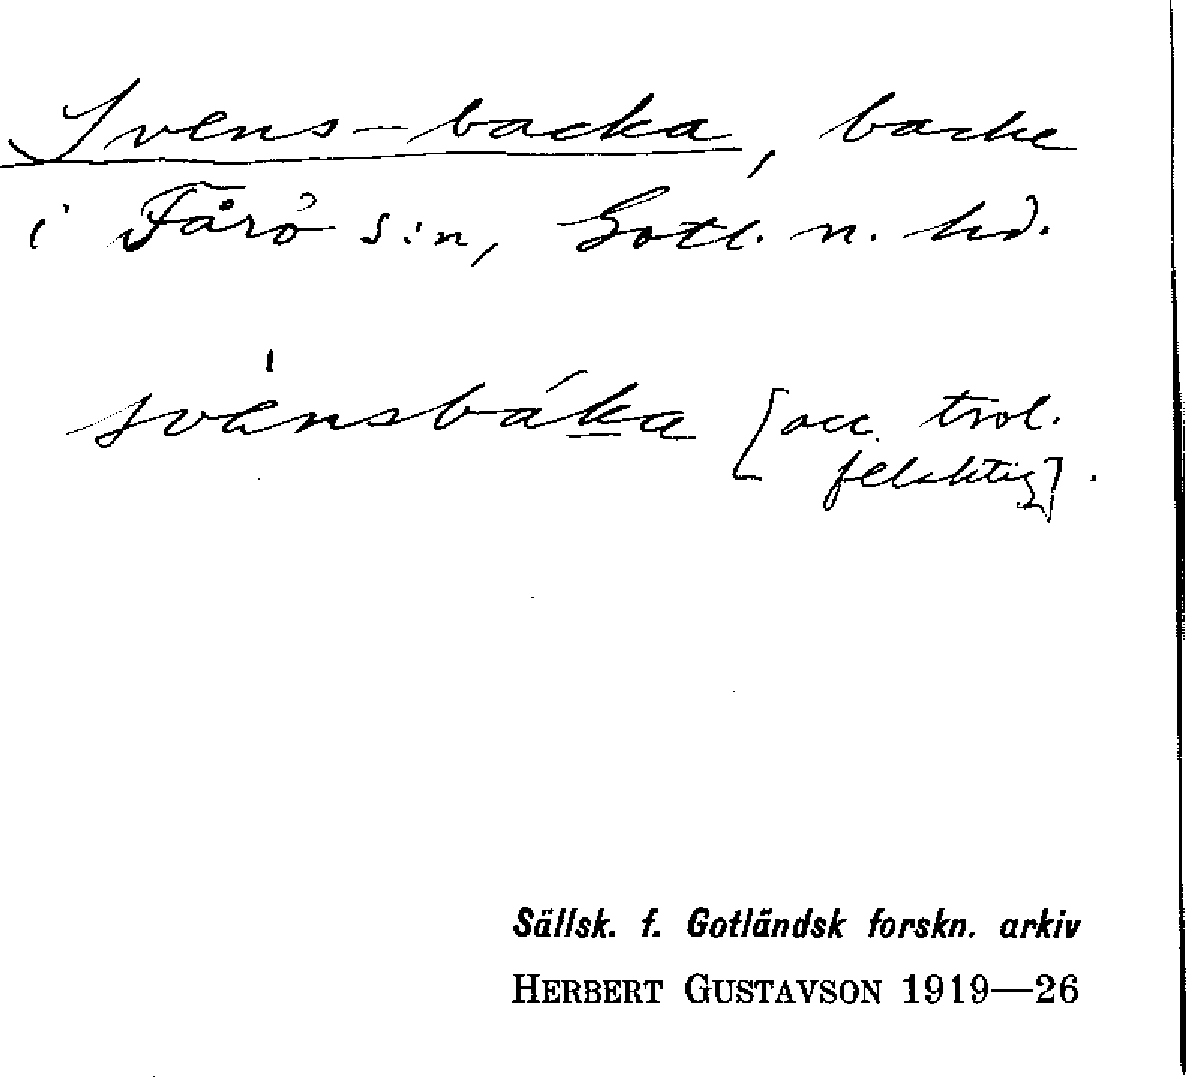 Svens-backa, backe
i Fårö s:n, Gotl. n. hd.
svènsbáka [acc. trol.
felaktig].
Sällsk. f. Gotländsk forskn. arkiv
HERBERT GUSTAVSON 1919—26